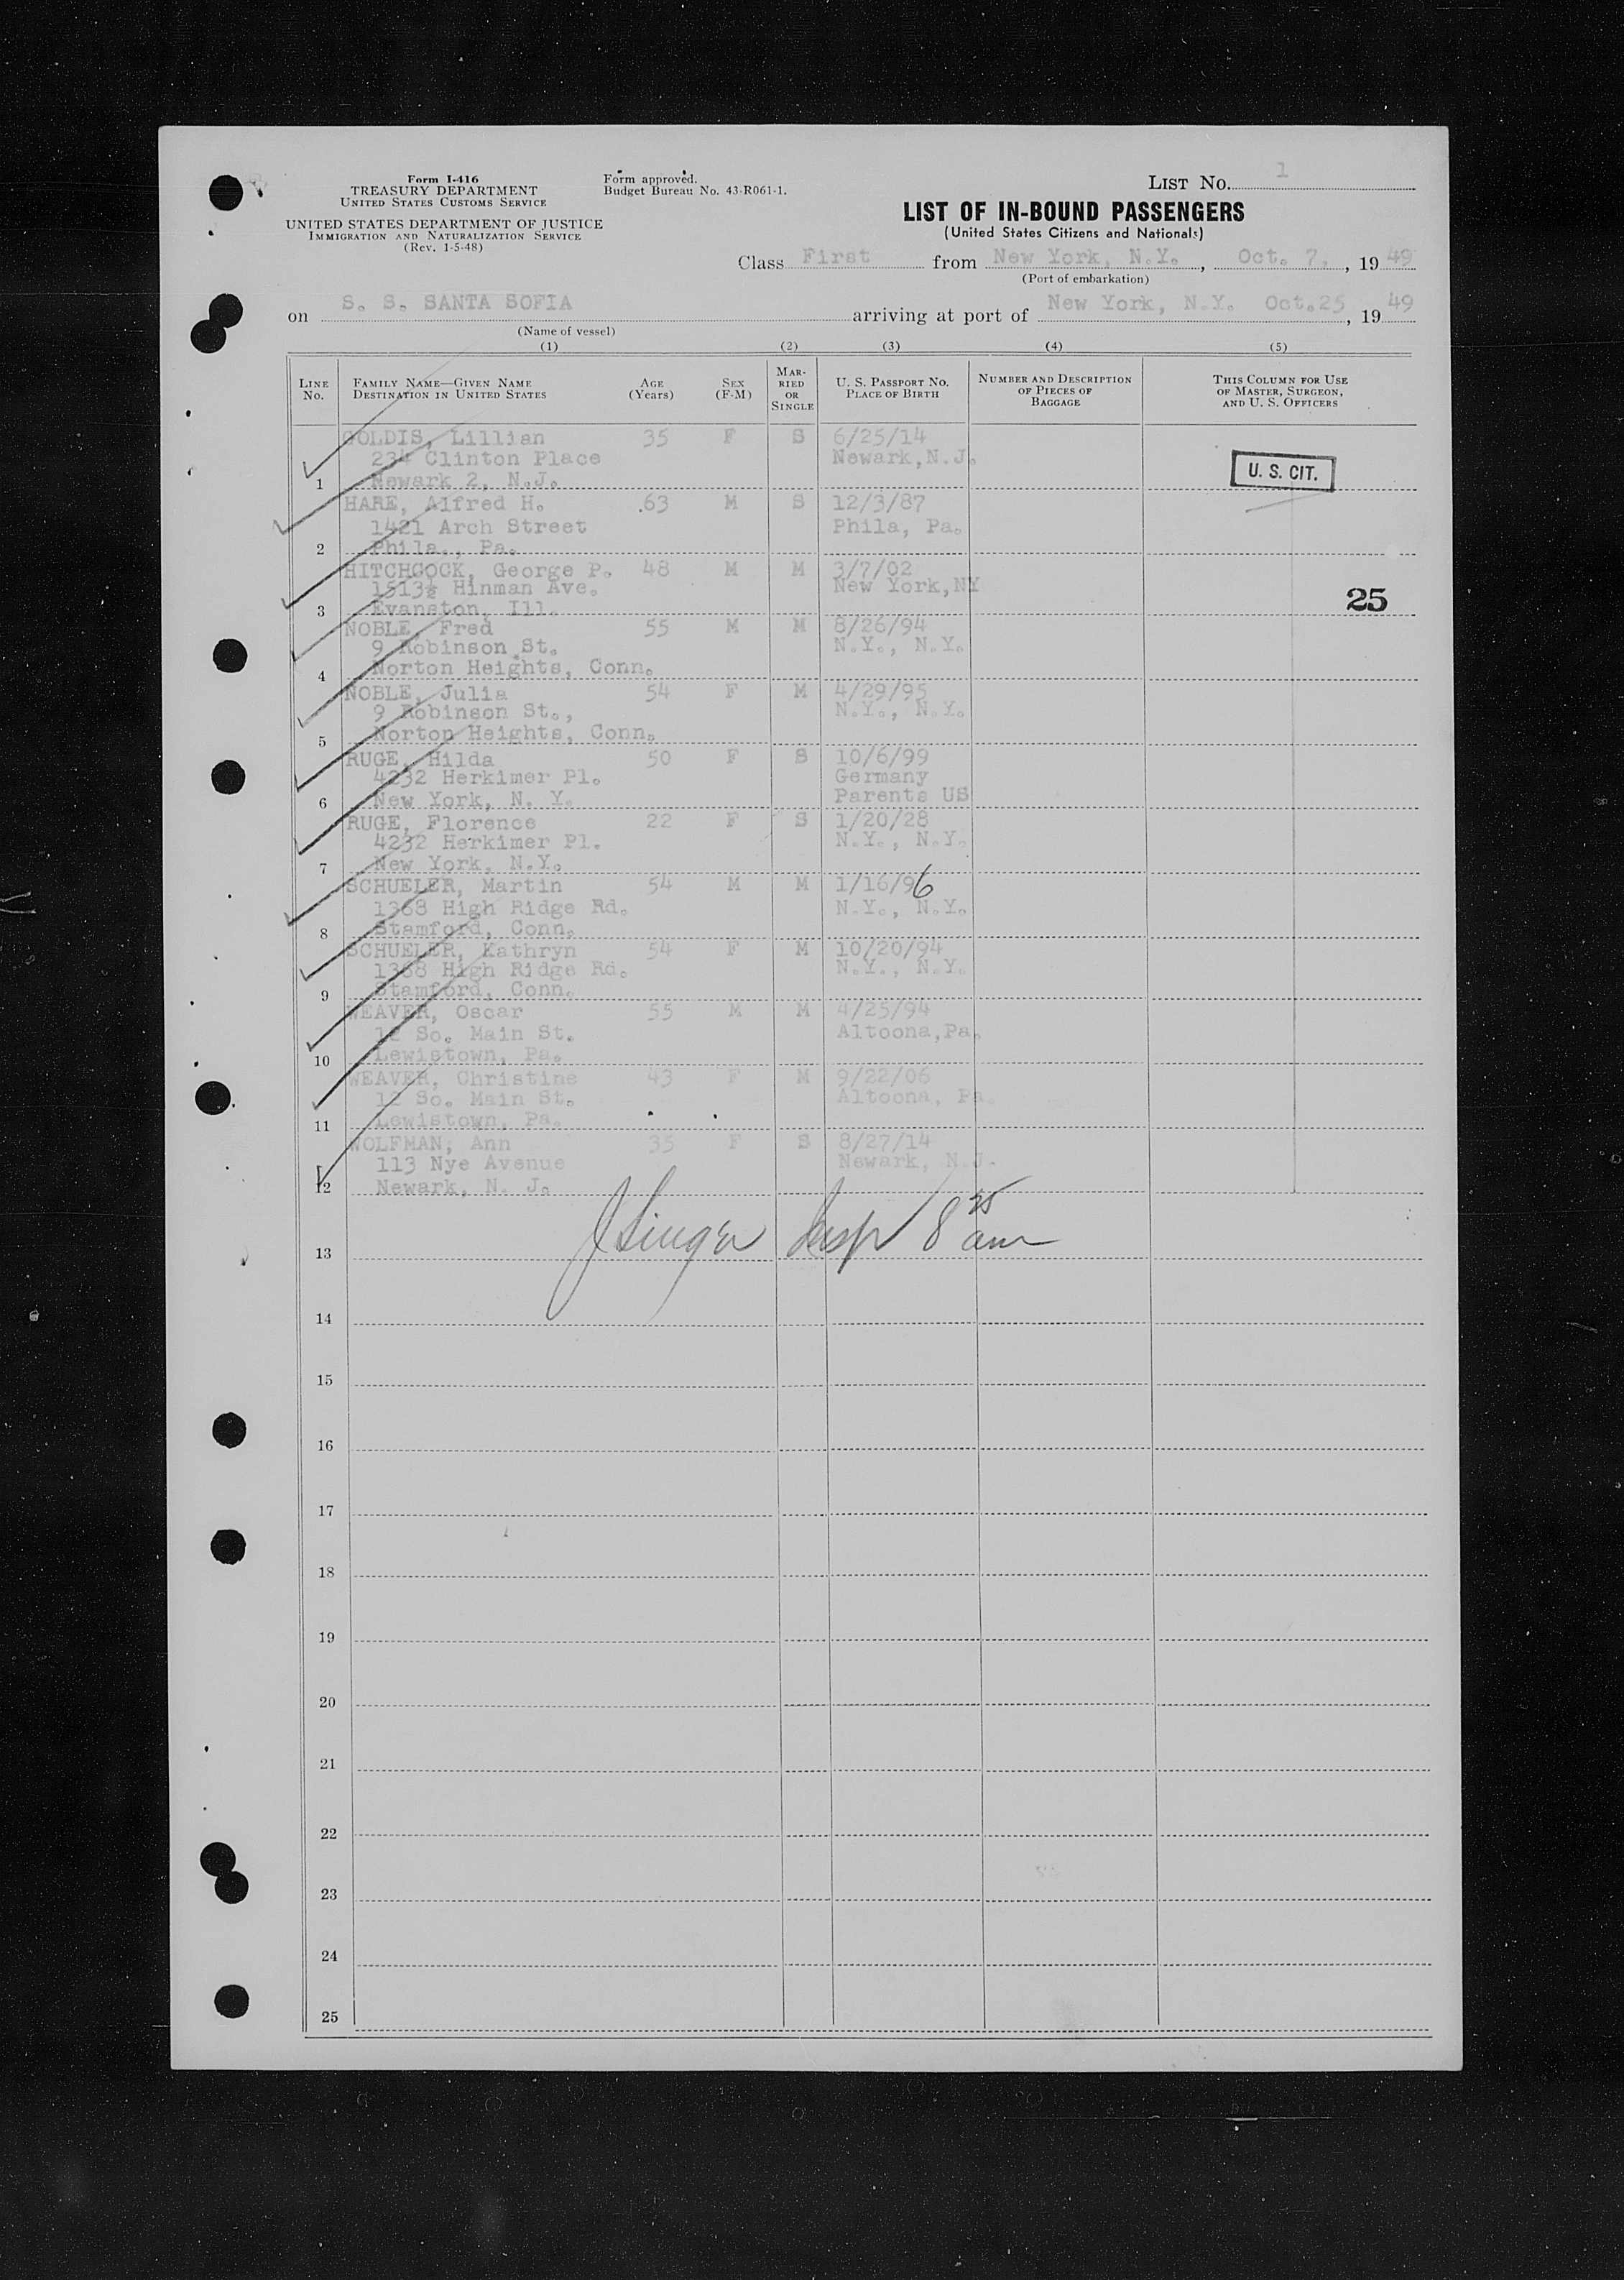 Form I-416
TREASURY DEPARTMENT
UNITED STATES CUSTOMS SERVICE
UNITED STATES DEPARTMENT OF JUSTICE
IMMIGRATION AND NATURALIZATION SERVICE
(Rev. 1-5-48)
Form approved.
Budget Bureau No. 43-R061-1.
LIST No. 1
LIST OF IN-BOUND PASSENGERS
(United States Citizens and Nationals)
Class First from New York, N.Y., Oct. 7, 19 49
(Port of embarkation)
on S. S. SANTA SOFIA arriving at port of New York, N.Y. Oct.25, 19 49
(Name of vessel)
(1) (2) (3) (4) (5)
LINE No. FAMILY NAME—GIVEN NAME DESTINATION IN UNITED STATES AGE (Years) SEX (F-M) MARRIED OR SINGLE U. S. PASSPORT NO. PLACE OF BIRTH NUMBER AND DESCRIPTION OF PIECES OF BAGGAGE THIS COLUMN FOR USE OF MASTER, SURGEON, AND U. S. OFFICERS
GOLDIS, Lillian 35 F S 6/25/14
234 Clinton Place Newark, N.J.
U. S. CIT.
1 Newark 2, N.J.
HARE, Alfred H. 63 M S 12/3/87
1421 Arch Street Phila, Pa.
2 Phila., Pa.
HITCHCOCK, George P. 48 M M 3/7/02
1513½ Hinman Ave. New York, NY
3 Evanston, Ill. 25
NOBLE, Fred 55 M M 8/26/94
9 Robinson St. N.Y., N.Y.
4 Norton Heights, Conn.
NOBLE, Julia 54 F M 4/29/95
9 Robinson St., N.Y., N.Y.
5 Norton Heights, Conn.
RUGE, Hilda 50 F S 10/6/99
4232 Herkimer Pl. Germany
6 New York, N. Y. Parents US
RUGE, Florence 22 F S 1/20/28
4232 Herkimer Pl. N.Y., N.Y.
7 New York, N.Y.
SCHUELER, Martin 54 M M 1/16/96
1368 High Ridge Rd. N.Y., N.Y.
8 Stamford, Conn.
SCHUELER, Kathryn 54 F M 10/20/94
1368 High Ridge Rd. N.Y., N.Y.
9 Stamford, Conn.
WEAVER, Oscar 55 M M 4/25/94
12 So. Main St. Altoona, Pa.
10 Lewistown, Pa.
WEAVER, Christine 43 F M 9/22/06
12 So. Main St. Altoona, Pa.
11 Lewistown, Pa.
WOLFMAN, Ann 35 F S 8/27/14
113 Nye Avenue Newark, N.J.
12 Newark, N. J.
J Singer Insp 8 25 am
13
14
15
16
17
18
19
20
21
22
23
24
25